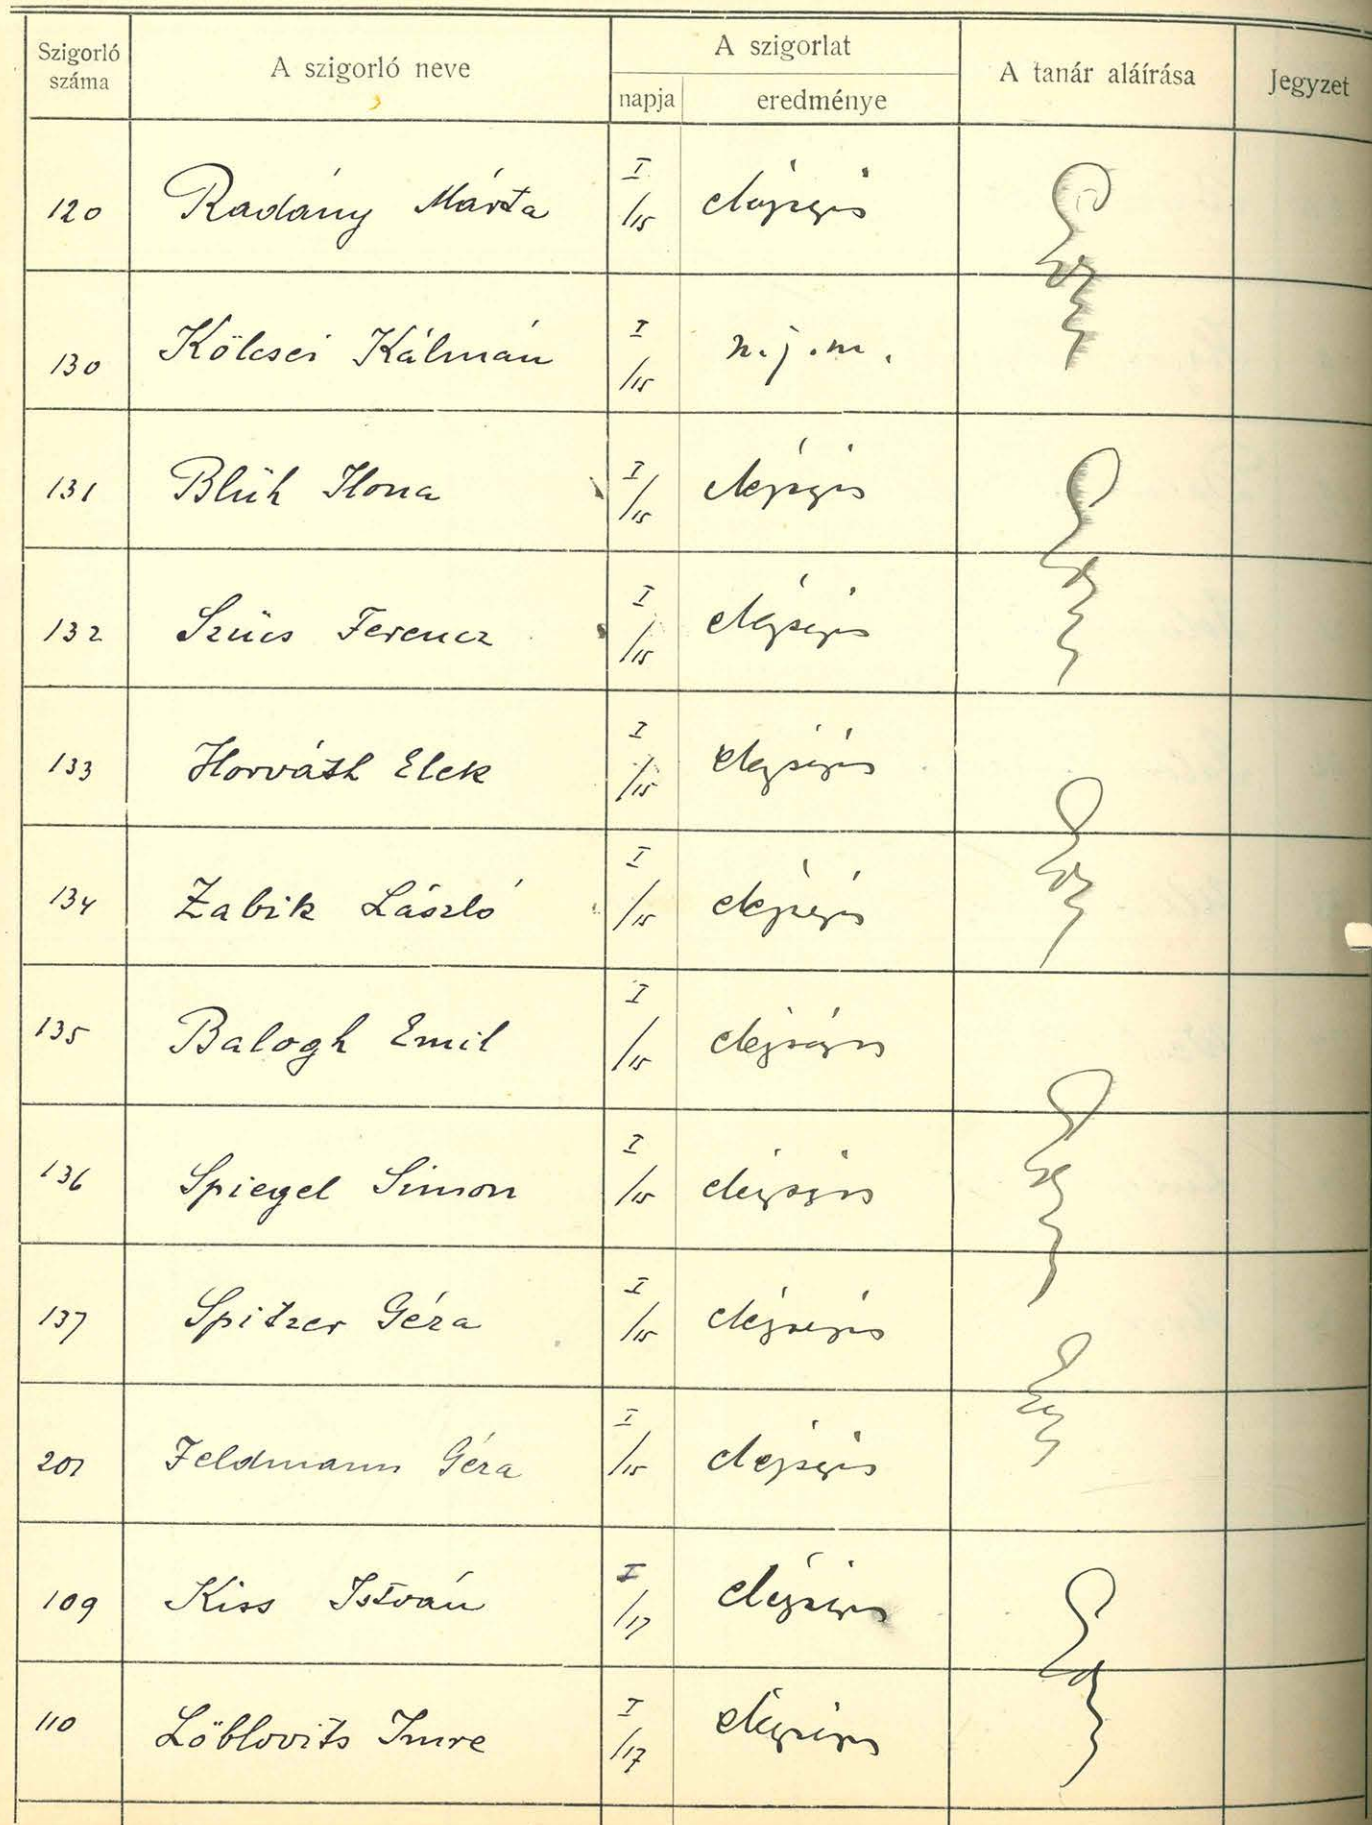 Szigorló száma A szigorló neve A szigorlat napja eredménye A tanár aláírása Jegyzet
120 Radány Márta I/15 elégséges
130 Kölcsei Kálmán I/15 n. j. m.
131 Blüh Ilona I/15 elégséges
132 Szücs Ferencz I/15 elégséges
133 Horváth Elek I/15 elégséges
134 Zabik László I/15 elégséges
135 Balogh Emil I/15 elégséges
136 Spiegel Simon I/15 elégséges
137 Spitzer Géza I/15 elégséges
201 Feldmann Géza I/15 elégséges
109 Kiss István I/17 elégséges
110 Löblovits Imre I/17 elégséges